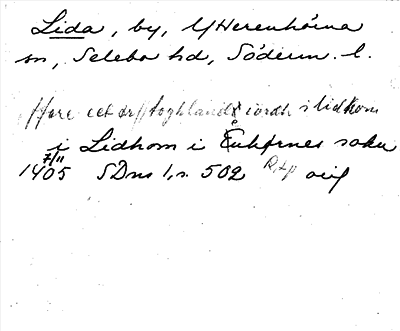 Lida, by, Ytterenhörna
sn, Selebo hd, Söderm. l.
ffore eet ørtoghland jordh i lidhom
i Lidhom i Enhørnes sokn
7/11
1405 SDns 1, s. 502 Rap orig